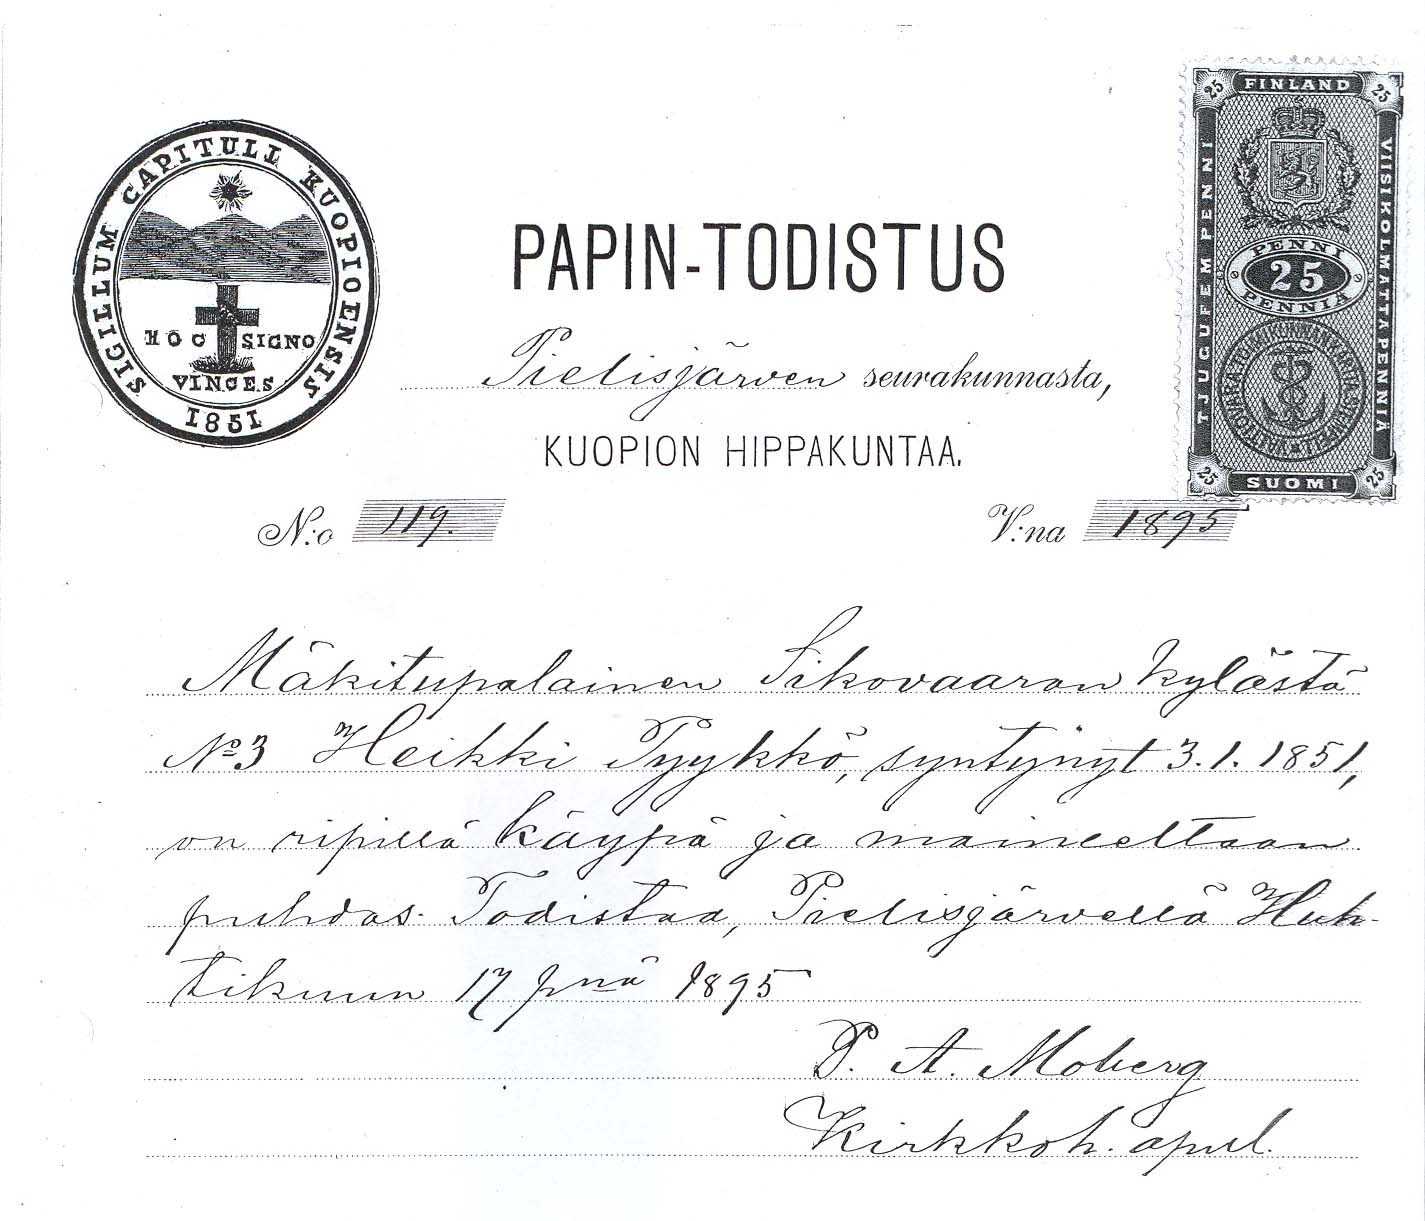 SIGILLUM CAPITULI KUOPIOENSIS
HOC SIGNO
VINCES
1851
PAPIN-TODISTUS
Pielisjärven seurakunnasta,
KUOPION HIPPAKUNTAA.
N:o 119.
V:na 1895
FINLAND
25 25
TJUGUFEM PENNI
VIISIKOLMATTA PENNIÄ
PENNI
25
PENNIÄ
25 25
SUOMI
Mäkitupalainen Sikovaaran kylästä
No 3 Heikki Tyykkö, syntynyt 3.1.1851,
on ripillä käypä ja maineeltaan
puhdas. Todistaa, Pielisjärvellä Huh-
tikuun 17 pnä 1895
P. A. Moberg
Kirkkoh. apul.